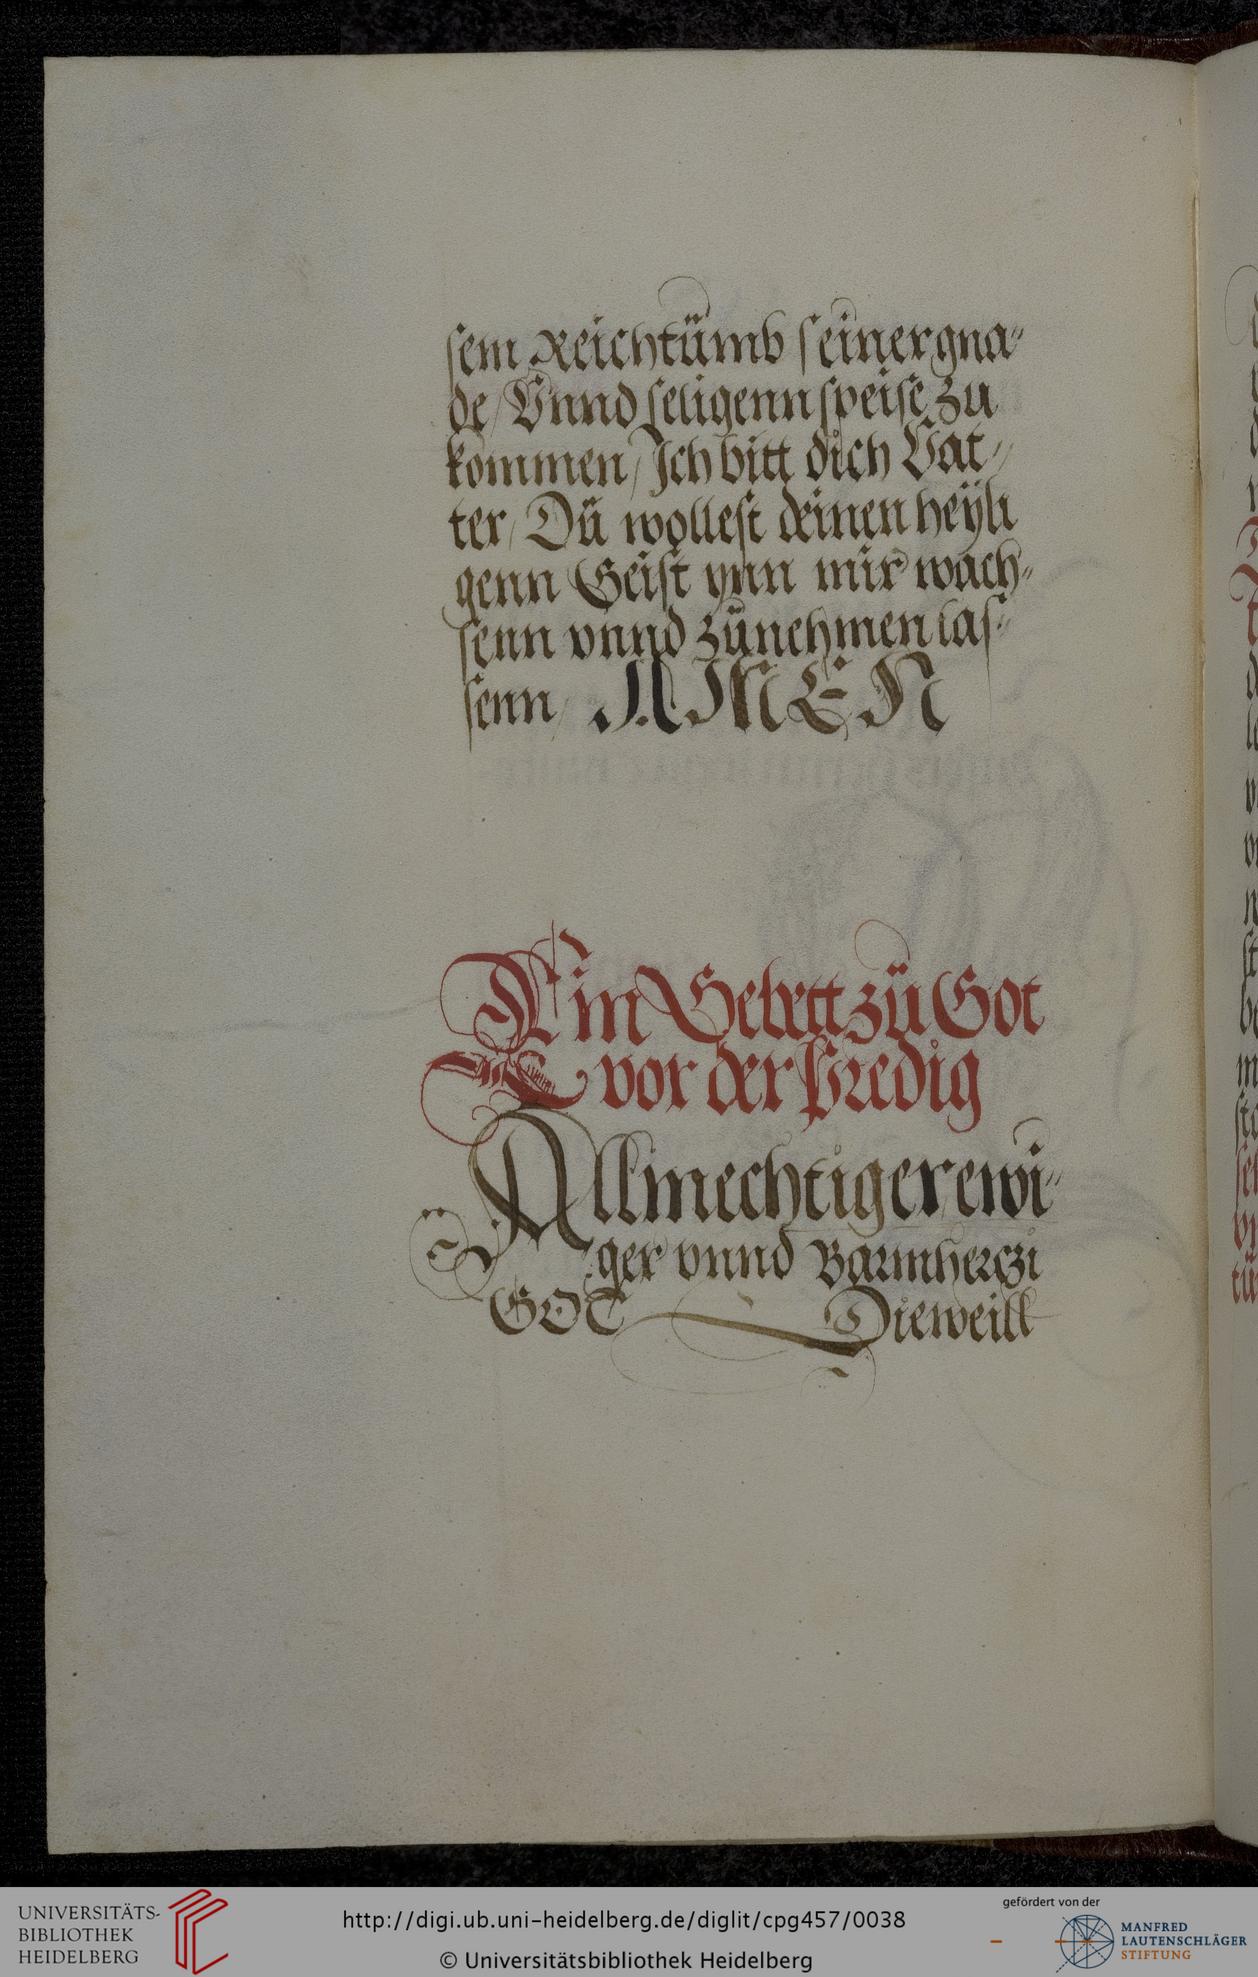 sem Reichtümb seiner gna⸗
de / Vnnd seligenn speise zu
kommen / Ich bitt dich Vat⸗
ter / Dü wollest deinen heÿli
genn Geist ynn mir wach⸗
senn vnnd zünehmen las⸗
senn / AMEN
Ein Gebett zü Got
vor der Predig
Allmechtiger ewi⸗
ger vnnd Barmherczi
GOT Dieweill
UNIVERSITÄTS-
BIBLIOTHEK
HEIDELBERG
http://digi.ub.uni-heidelberg.de/diglit/cpg457/0038
© Universitätsbibliothek Heidelberg
gefördert von der
MANFRED
LAUTENSCHLÄGER
STIFTUNG